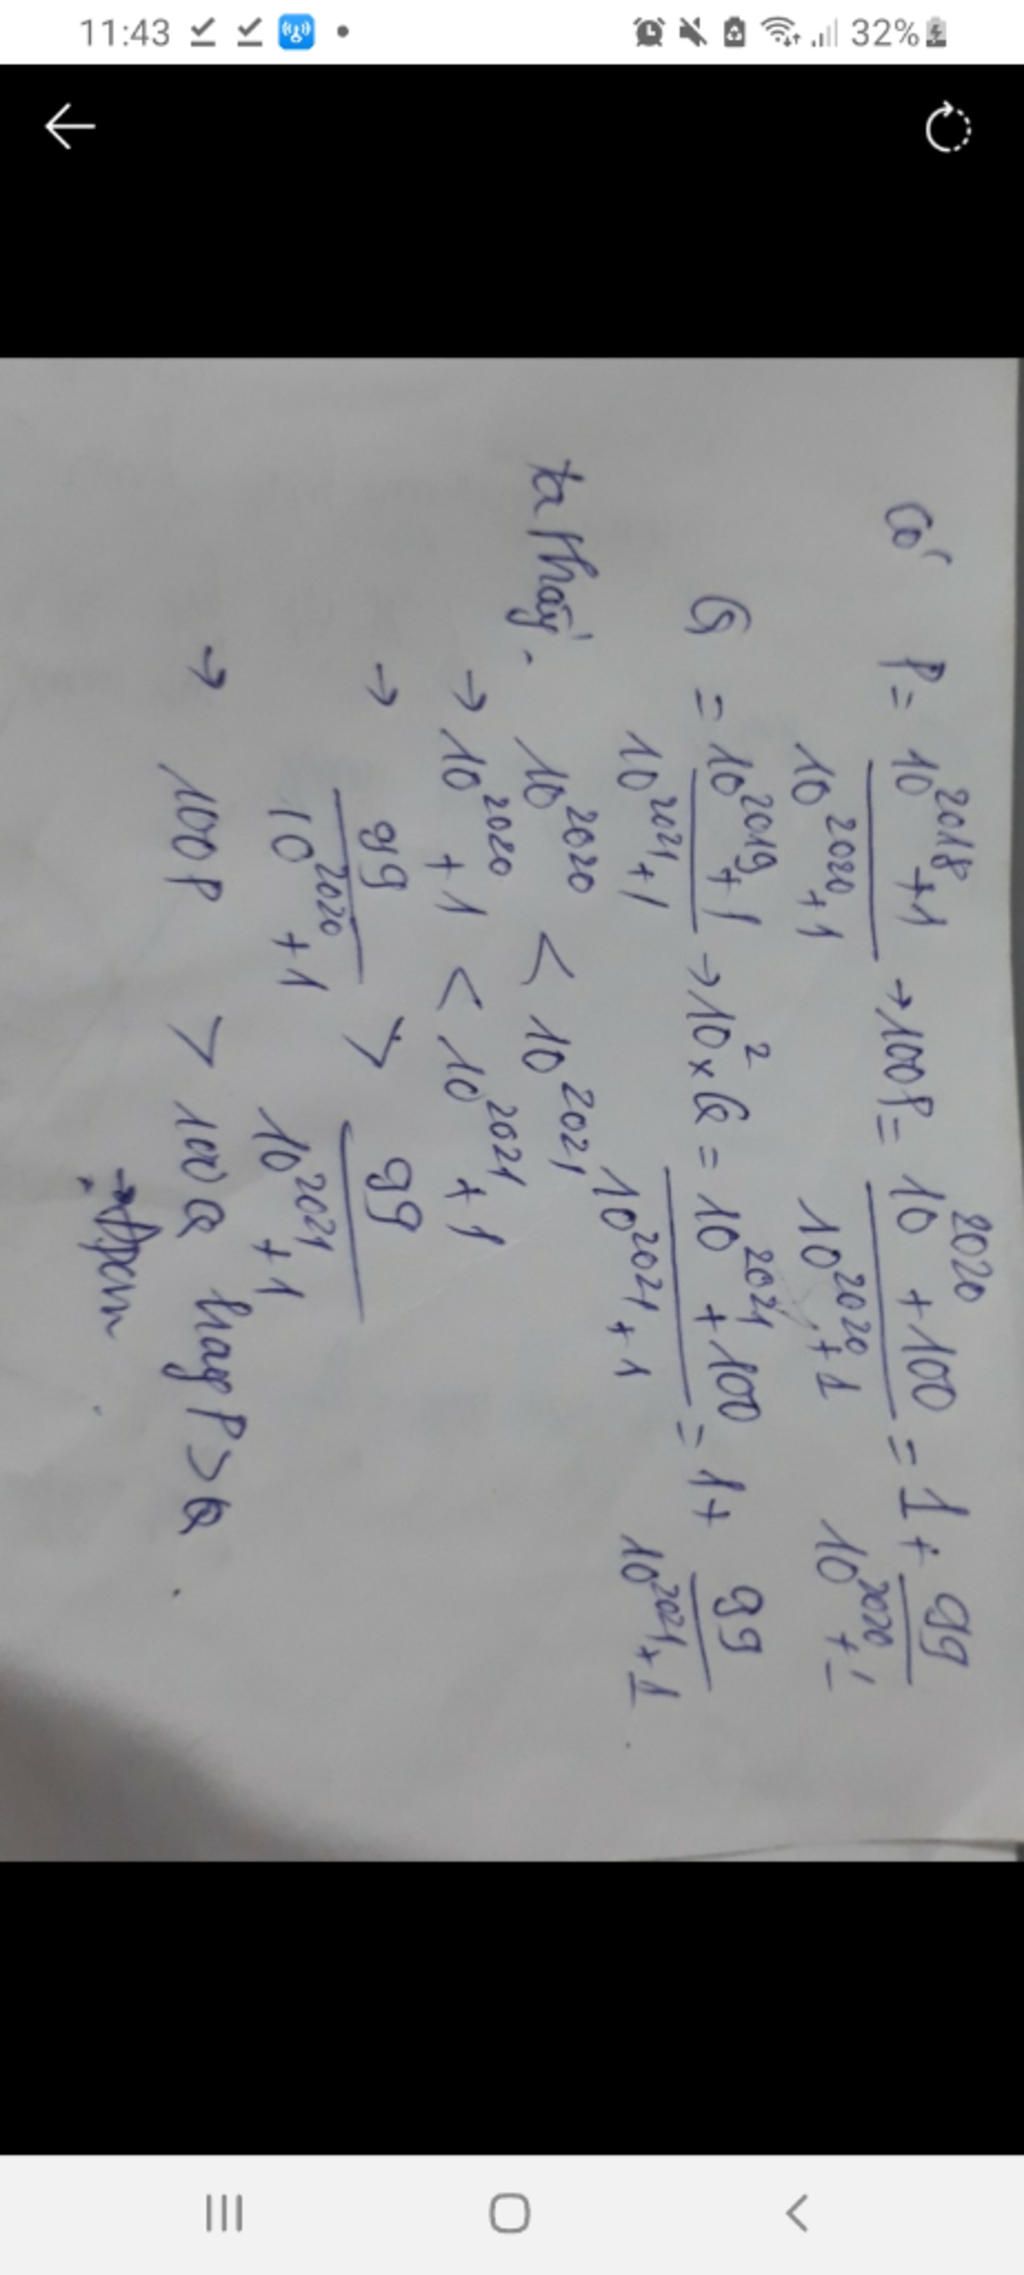 11:43
32%
Có P = 10^2018 + 1 / 10^2020 + 1 → 100P = 10^2020 + 100 / 10^2020 + 1 = 1 + 99 / 10^2020 + 1
Q = 10^2019 + 1 / 10^2021 + 1 → 10^2 × Q = 10^2021 + 100 / 10^2021 + 1 = 1 + 99 / 10^2021 + 1
ta thấy. 10^2020 < 10^2021
→ 10^2020 + 1 < 10^2021 + 1
→ 99 / 10^2020 + 1 > 99 / 10^2021 + 1
→ 100P > 100Q hay P > Q